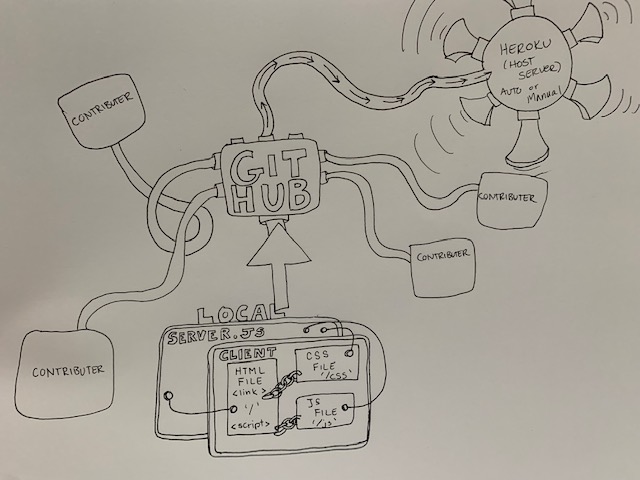 HEROKU
(HOST
SERVER)
AUTO or
Manual
CONTRIBUTER
GIT
HUB
CONTRIBUTER
CONTRIBUTER
CONTRIBUTER
LOCAL
SERVER.JS
CLIENT
HTML
FILE
<link>
'/'
<script>
CSS
FILE
'/css'
JS
FILE
'/js'